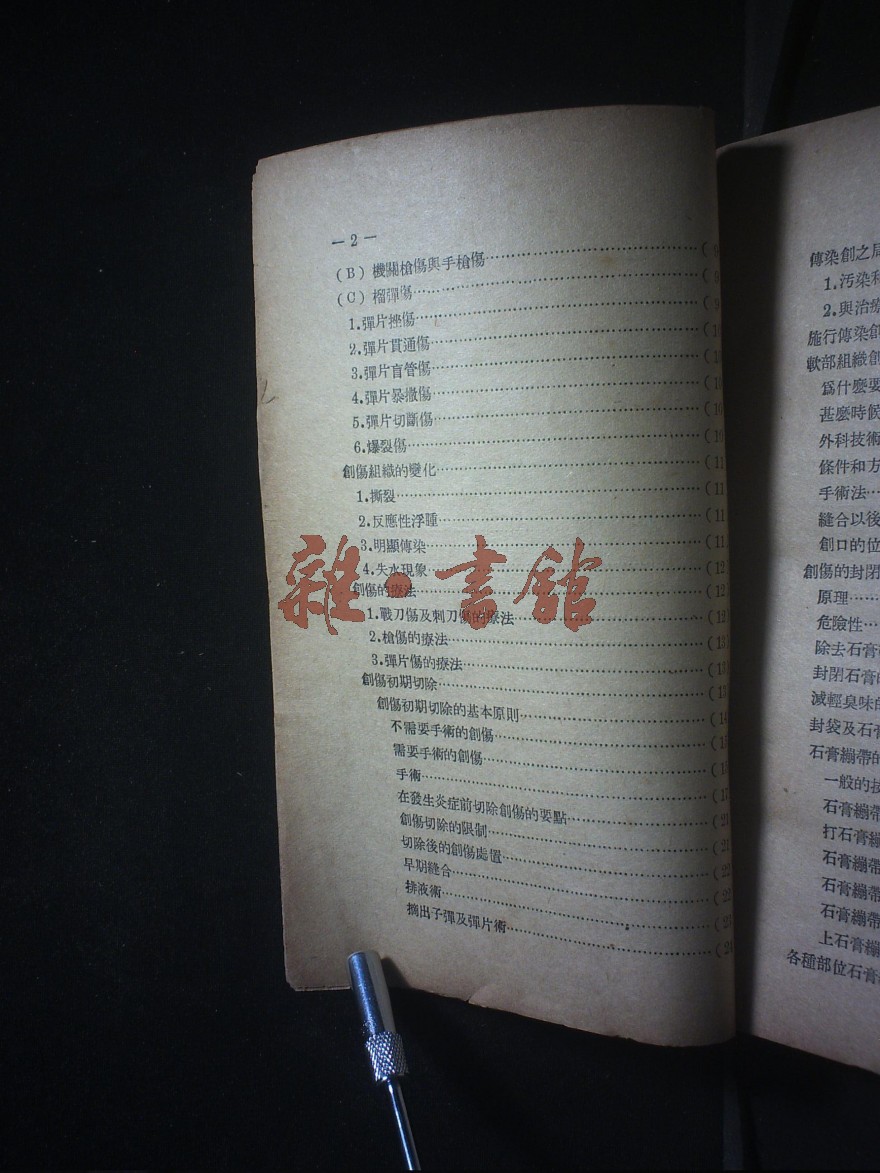 — 2 —
(B) 機關槍傷與手槍傷……(9
(C) 榴彈傷……(9
1.彈片挫傷……(9
2.彈片貫通傷……(10
3.彈片盲管傷……(10
4.彈片暴撒傷……(10
5.彈片切斷傷……(10
6.爆裂傷……(10
創傷組織的變化……(11
1.撕裂……(11
2.反應性浮腫……(11
3.明顯傳染……(11
4.失水現象……(12
創傷的療法……(12
1.戰刀傷及刺刀傷的療法……(12)
2.槍傷的療法……(13)
3.彈片傷的療法……(13)
創傷初期切除……(13
創傷初期切除的基本原則……(14
不需要手術的創傷……(15
需要手術的創傷……(16
手術……(17
在發生炎症前切除創傷的要點……(21
創傷切除的限制……(21
切除後的創傷處置……(22
早期縫合……(22
排液術……(23
摘出子彈及彈片術……(24
傳染創之局
1.汚染和
2.與治療
施行傳染創
軟部組織創
爲什麼要
甚麼時候
外科技術
條件和方
手術法…
縫合以後
創口的位
創傷的封閉
原理……
危險性…
除去石膏
封閉石膏的
減輕臭味的
封袋及石膏
石膏繃帶的
一般的技
石膏繃帶
打石膏繃
石膏繃帶
石膏繃帶
石膏繃帶
上石膏繃
各種部位石膏
雜·書館